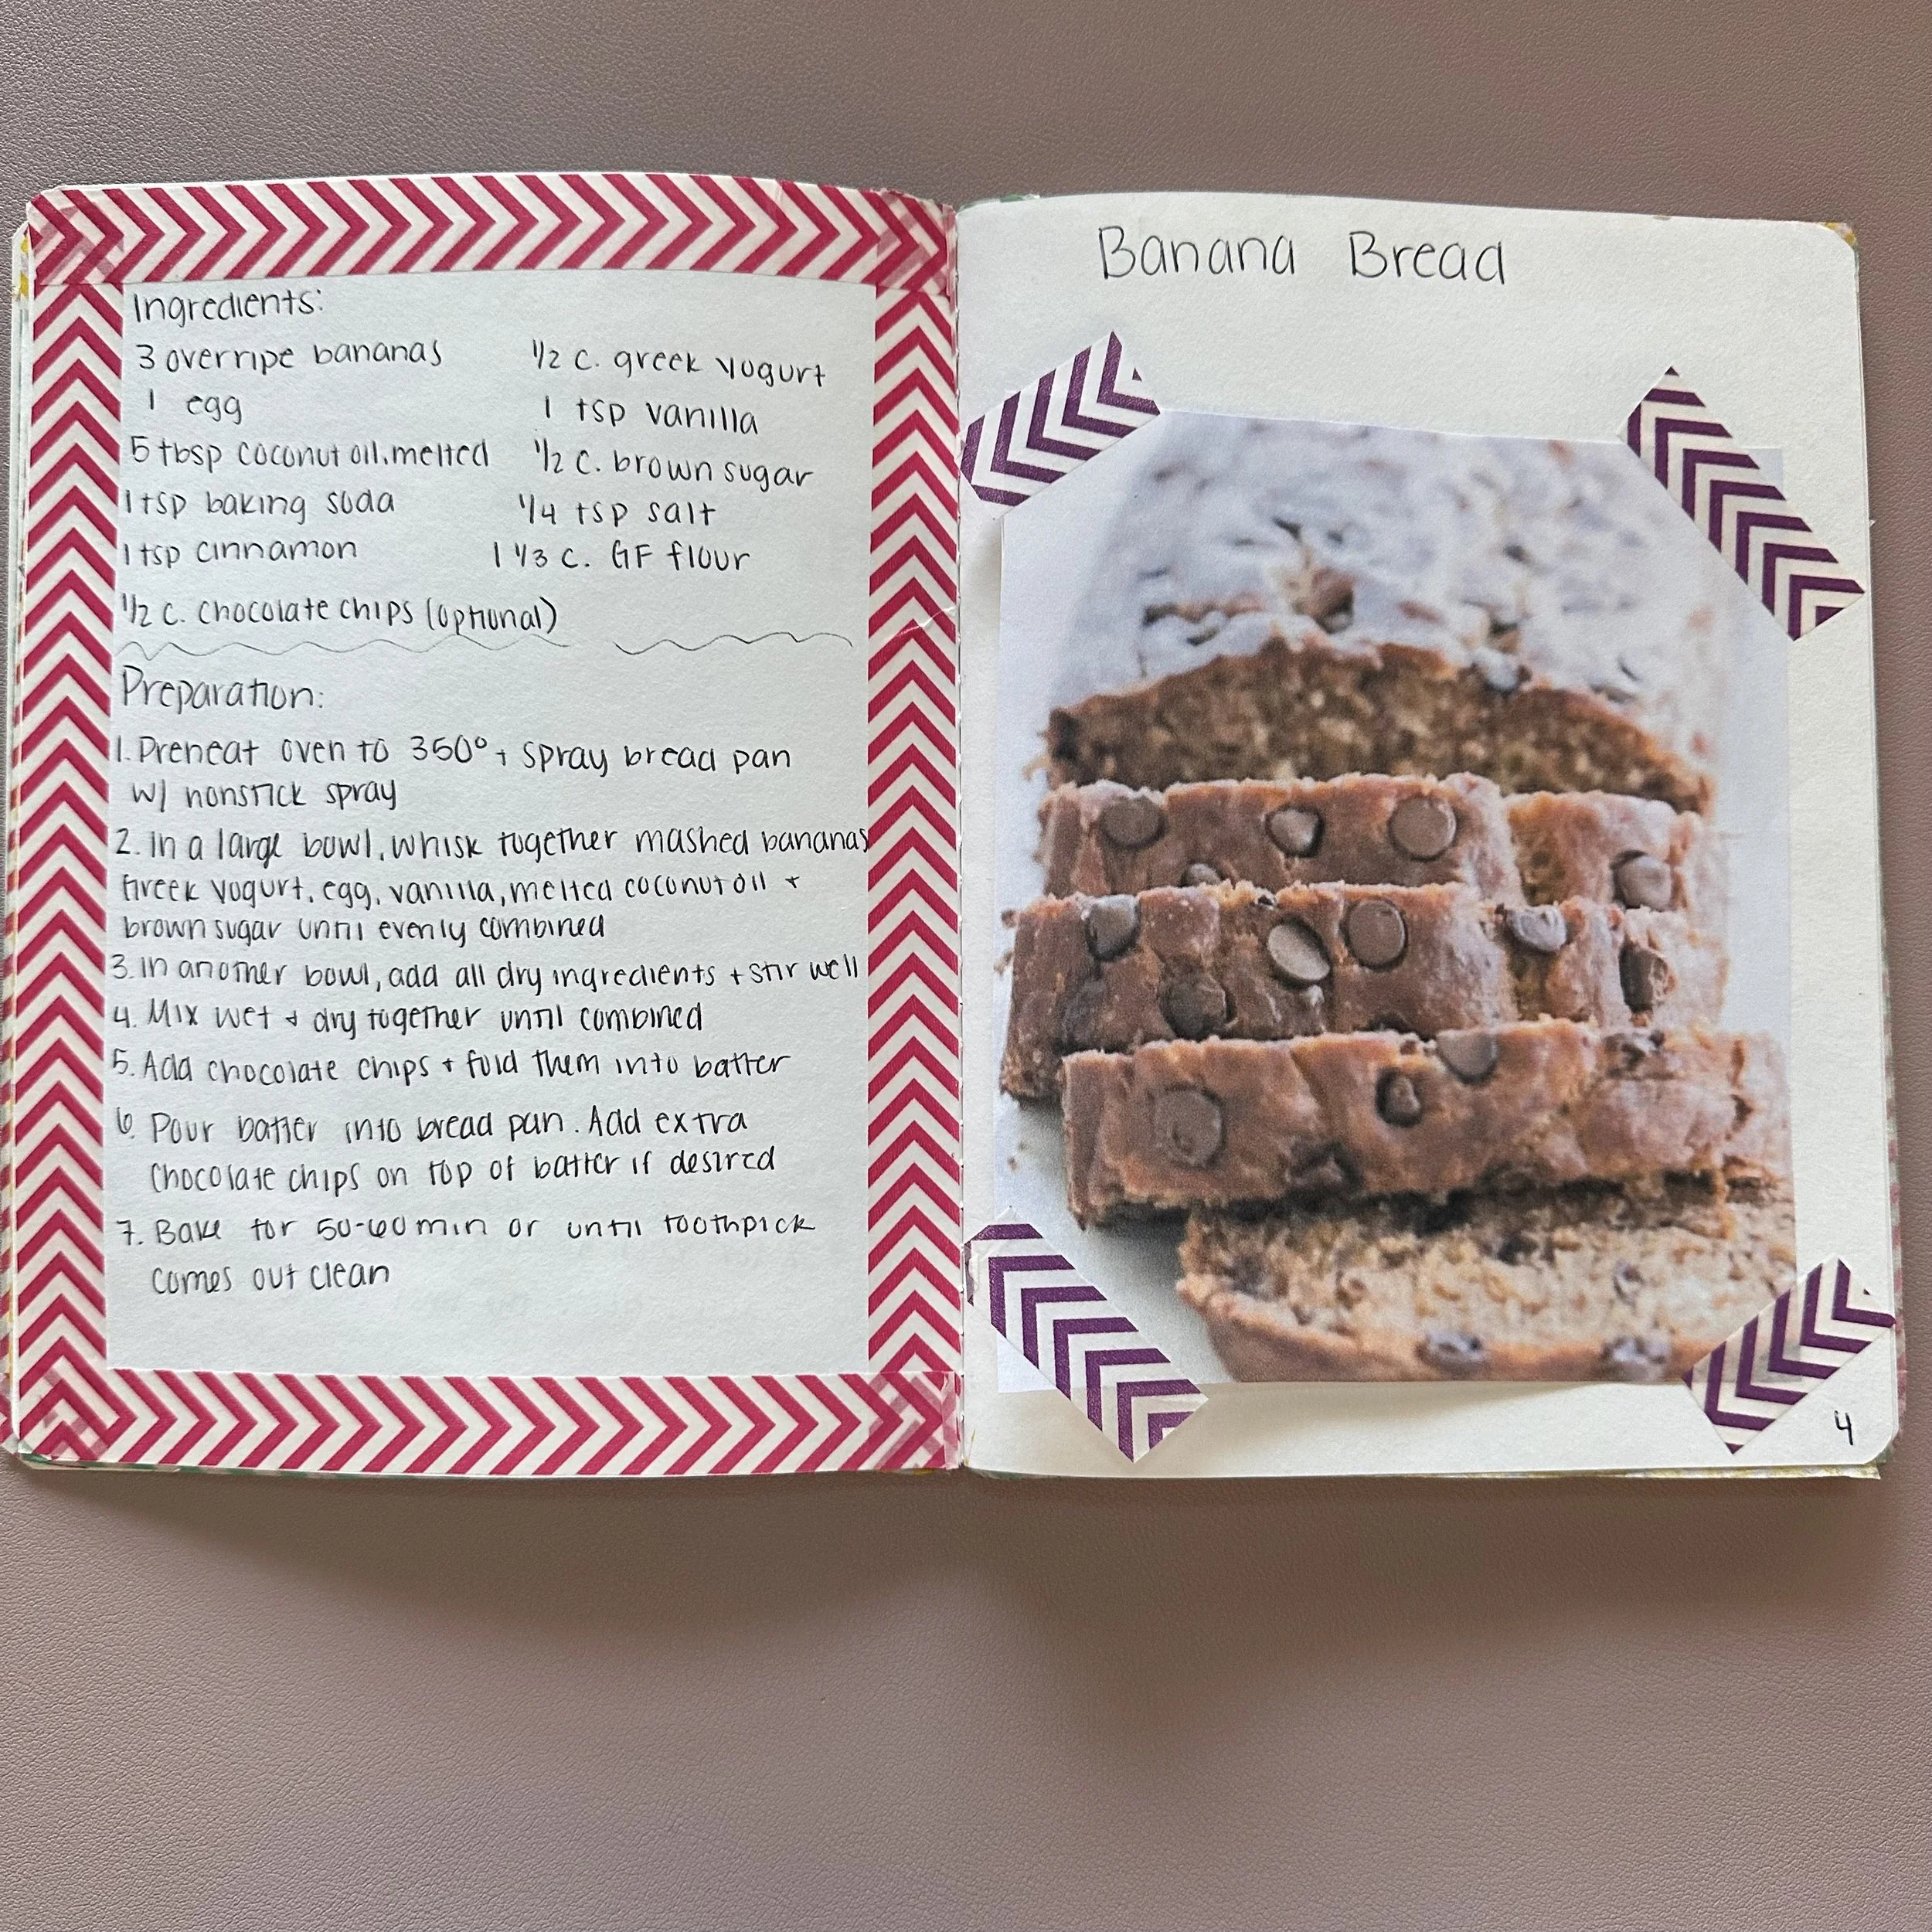 Ingredients:
3 overripe bananas
1 egg
5 tbsp coconut oil, melted
1 tsp baking soda
1 tsp cinnamon
1/2 c. greek yogurt
1 tsp vanilla
1/2 c. brown sugar
1/4 tsp salt
1 1/3 c. GF flour
1/2 c. chocolate chips (optional)
Preparation:
1. Preheat oven to 350° + spray bread pan
w/ nonstick spray
2. In a large bowl, whisk together mashed bananas
Greek yogurt, egg, vanilla, melted coconut oil +
brown sugar until evenly combined
3. In another bowl, add all dry ingredients + stir well
4. Mix wet + dry together until combined
5. Add chocolate chips + fold them into batter
6. Pour batter into bread pan. Add extra
chocolate chips on top of batter if desired
7. Bake for 50-60 min or until toothpick
comes out clean
Banana Bread
4